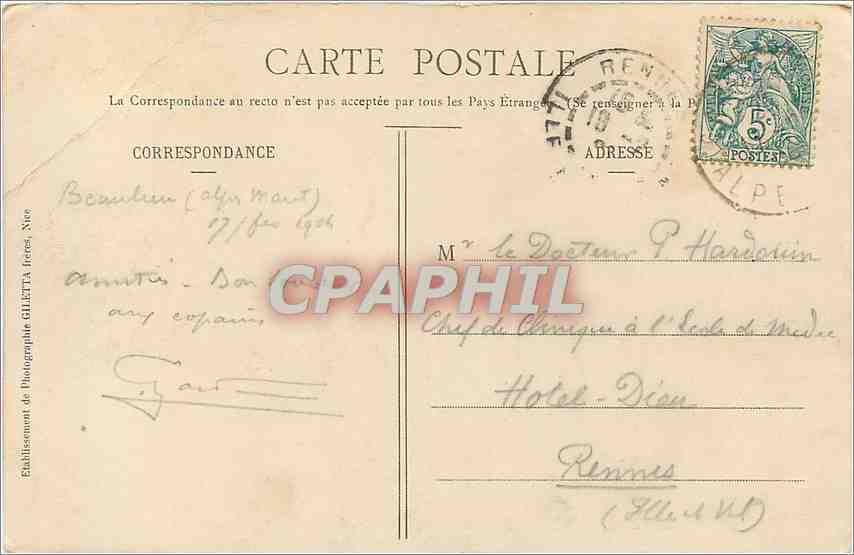 CARTE POSTALE
La Correspondance au recto n'est pas acceptée par tous les Pays Étrangers (Se renseigner à la P
CORRESPONDANCE
ADRESSE
Beaulieu (alpes Marit)
17/fev 1904
Amitiés - Bon
aux copains
Mr le Docteur P Hardouin
Chef de Clinique à l'Ecole de Medec
Hotel-Dieu
Rennes
(Ille et Vil)
Etablissement de Photographie GILETTA frères, Nice
RENNES
ILLE
5c
POSTES
ALPE
CPAPHIL